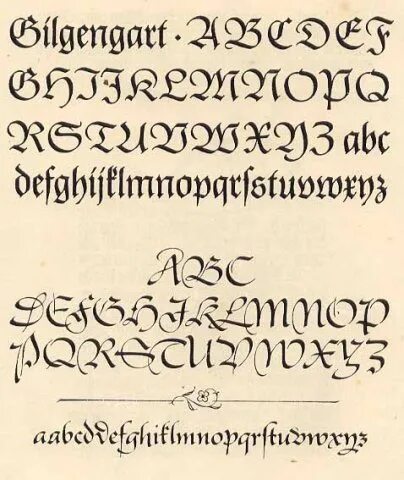 Gilgengart · ABCDEF
GHIJKLMNOPQ
RSTUVWXYZ abc
defghijklmnopqrſstuvwxyz
ABC
DEFGHIJKLMNOP
PQRSTUVWXYZ
aabcddefghiklmnopqrſtuvwxyz